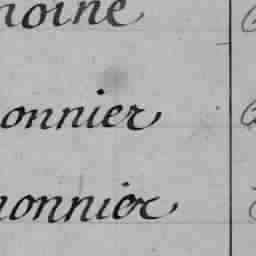 noine
onnier
nonnier